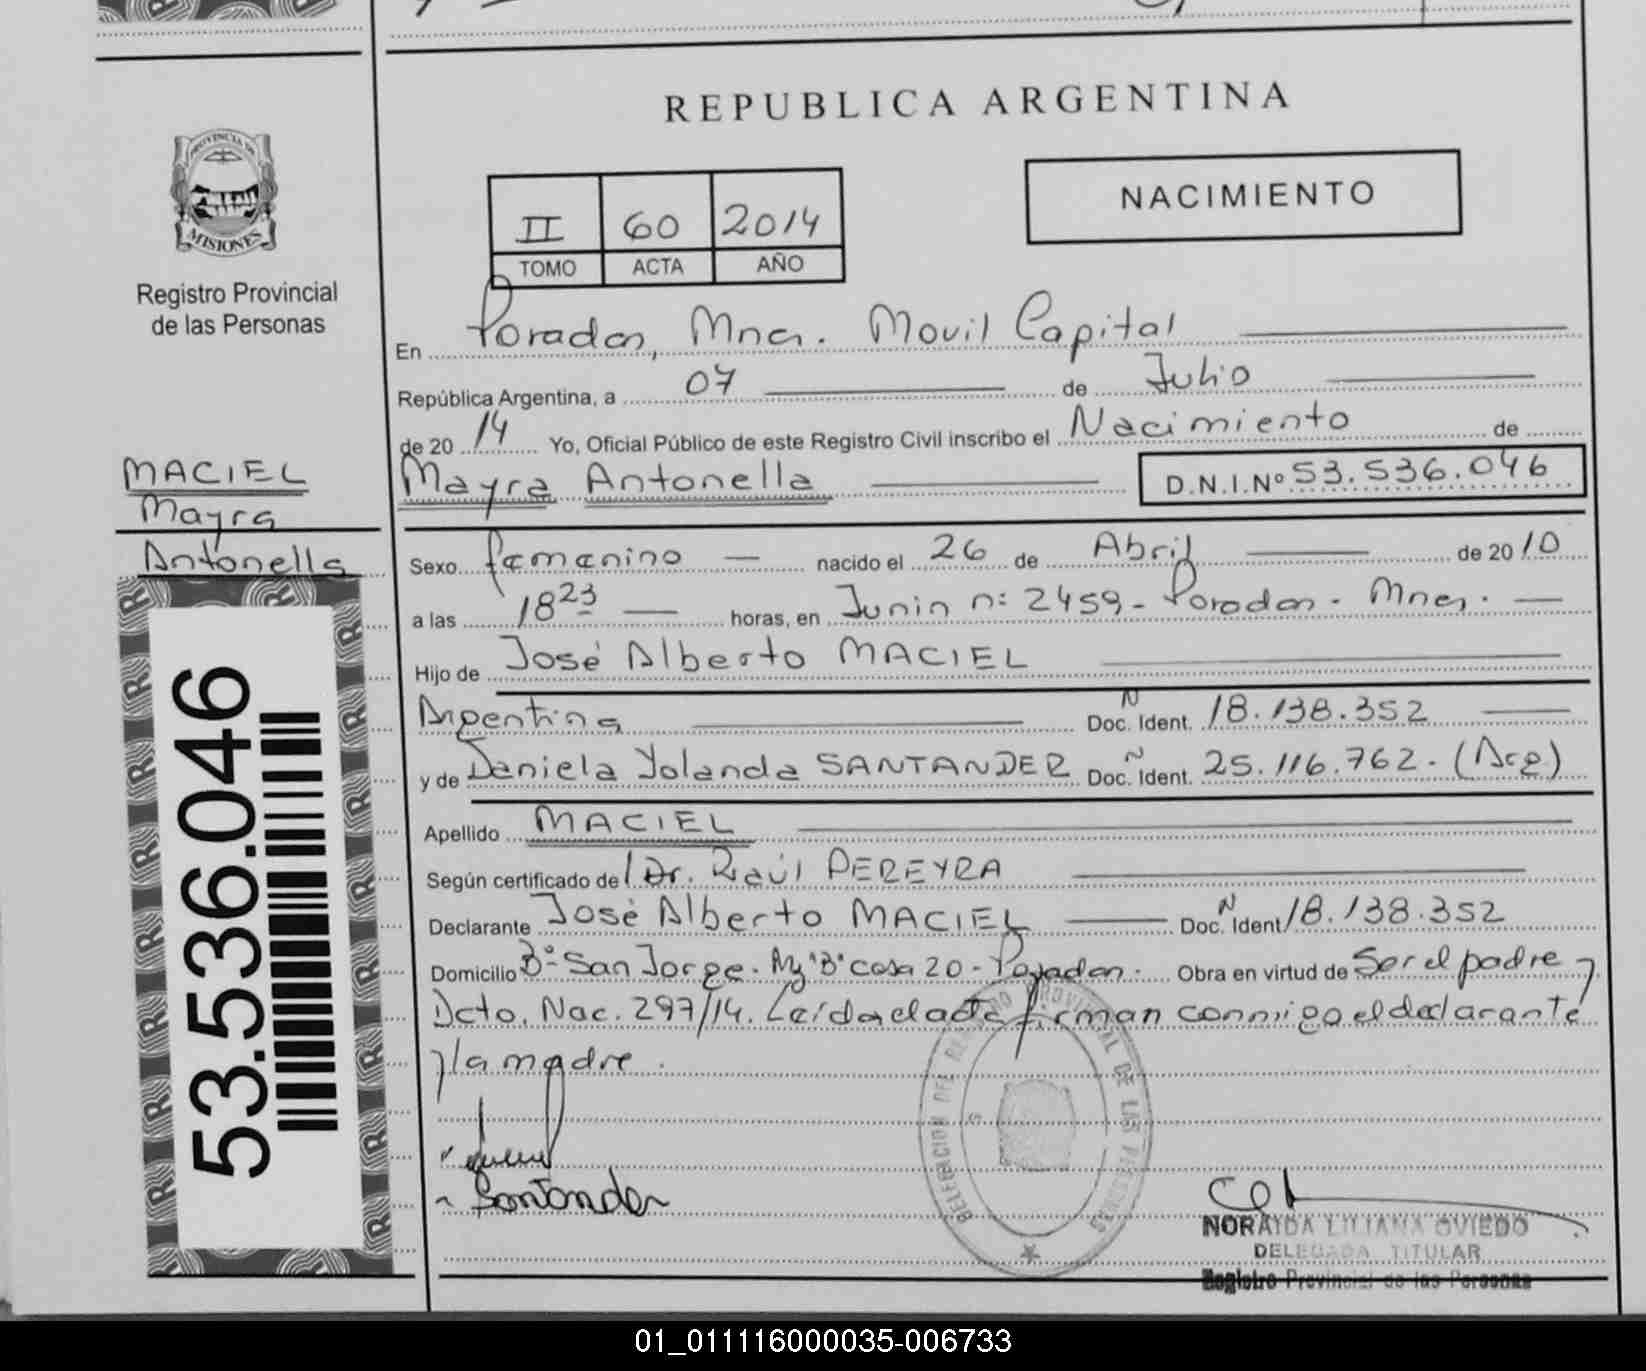 REPUBLICA ARGENTINA
PROVINCIA DE
MISIONES
Registro Provincial
de las Personas
NACIMIENTO
II 60 2014
TOMO ACTA AÑO
En Posadas, Mnes. Movil Capital
República Argentina, a 07 de Julio
de 20 14 Yo, Oficial Público de este Registro Civil inscribo el Nacimiento de
Mayra Antonella D.N.I.Nº 53.536.046
MACIEL
Mayra
Antonella
Sexo femenino nacido el 26 de Abril de 2010
a las 18 23 horas, en Junin nº 2459 - Posadas - Mnes.
Hijo de José Alberto MACIEL
Argentina Doc. Ident. N 18.138.352
y de Daniela Yolanda SANTANDER Doc. Ident. N 25.116.762. (Arg)
Apellido MACIEL
Según certificado del Dr. Raúl PEREYRA
Declarante José Alberto MACIEL Doc. Ident N 18.138.352
Domicilio Bº San Jorge. Mz "B" casa 20 - Posadas. Obra en virtud de Ser el padre y
Dcto. Nac. 297/14. Leída el acta firman conmigo el declarante
y la madre.
53.536.046
Santander
DELEGACION DEL REGISTRO PROVINCIAL DE LAS PERSONAS
NORAIDA LILIANA OVIEDO
DELEGADA TITULAR
Registro Provincial de las Personas
01_011116000035-006733